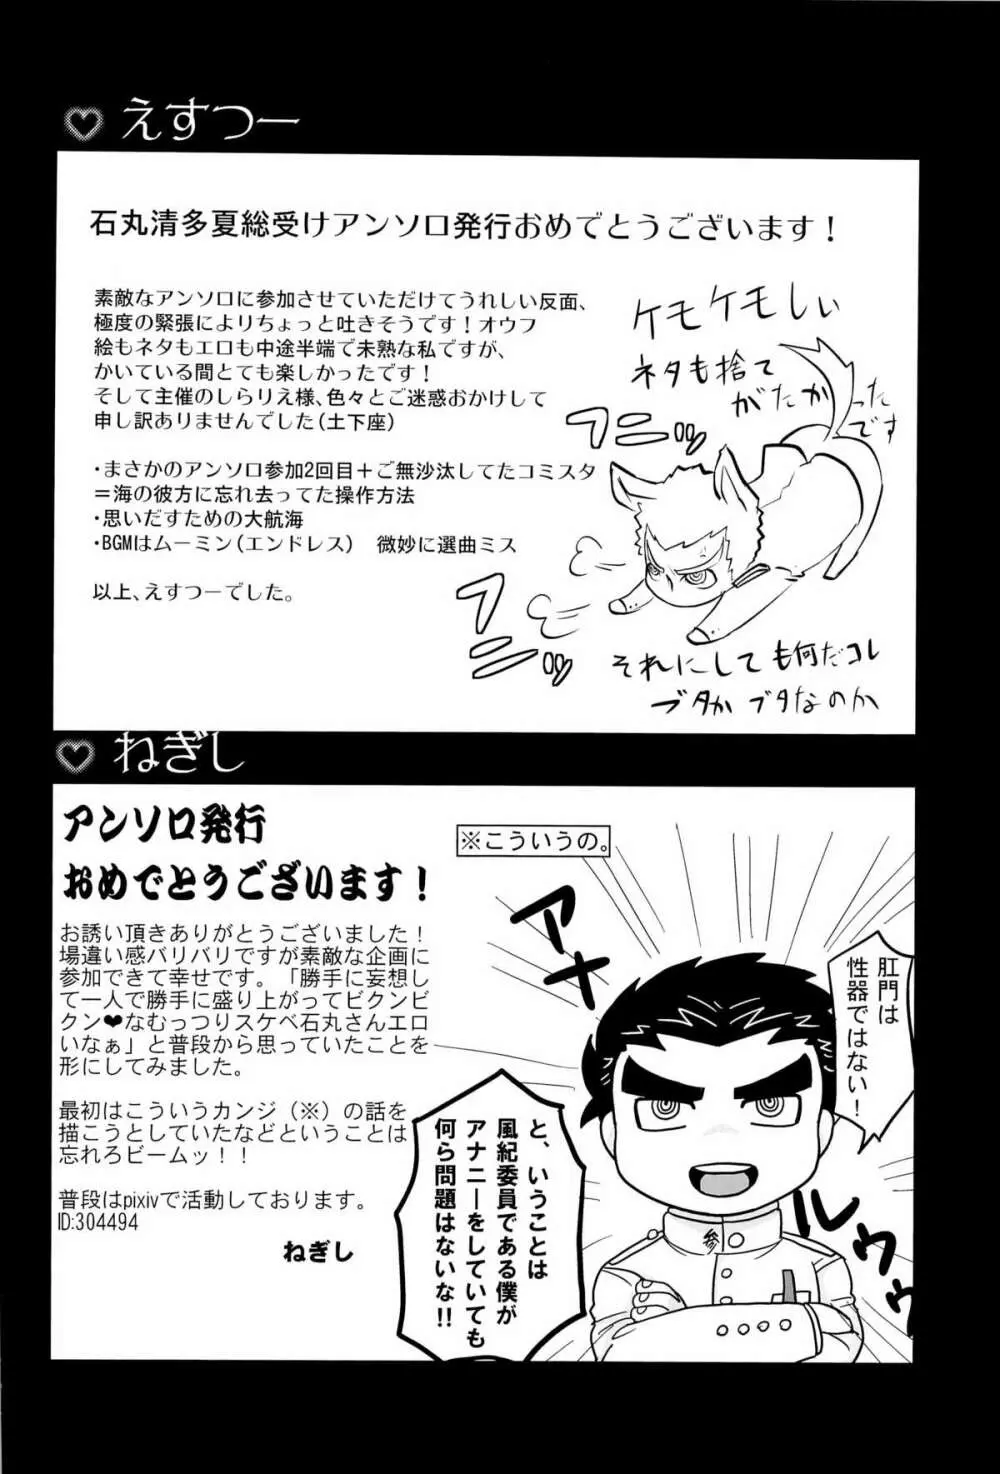 えすつー
石丸清多夏総受けアンソロ発行おめでとうございます！
素敵なアンソロに参加させていただけてうれしい反面、
極度の緊張によりちょっと吐きそうです！オウフ
絵もネタもエロも中途半端で未熟な私ですが、
かいている間とても楽しかったです！
そして主催のしらりえ様、色々とご迷惑おかけして
申し訳ありませんでした（土下座）
・まさかのアンソロ参加2回目＋ご無沙汰してたコミスタ
＝海の彼方に忘れ去ってた操作方法
・思いだすための大航海
・BGMはムーミン（エンドレス）　微妙に選曲ミス
以上、えすつーでした。
ケモケモしい
ネタも捨て
がたかったです
フニッ
フニッ
それにしても何だコレ
ブタか ブタなのか
ねぎし
アンソロ発行
おめでとうございます！
お誘い頂きありがとうございました！
場違い感バリバリですが素敵な企画に
参加できて幸せです。「勝手に妄想し
て一人で勝手に盛り上がってビクンビ
クン❤なむっつりスケベ石丸さんエロ
いなぁ」と普段から思っていたことを
形にしてみました。
最初はこういうカンジ（※）の話を
描こうとしていたなどということは
忘れろビームッ！！
普段はpixivで活動しております。
ID:304494
ねぎし
※こういうの。
アメ
肛門は
性器ではない！
と、いうことは
風紀委員である僕が
アナニーをしていても
何ら問題はないな!!
参
ルゥゥ